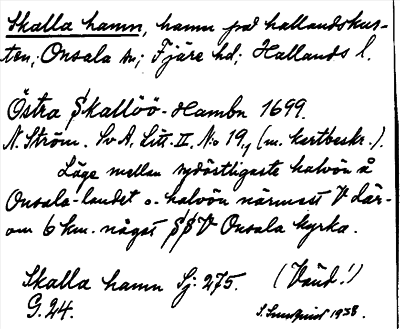 Skalla hamn, hamn på hallandskus-
ten; Onsala sn; Fjäre hd; Hallands l.
Östra Skallöö-Hambn 1699.
N. Ström. Sv A. Litt. II. No 19, (m. kartbeskr.).
Läge mellan sydöstligaste halvön å
Onsala-landet o. halvön närmast V där-
om 6 km. något SSV Onsala kyrka.
Skalla hamn Sj: 275. (Vänd!)
G. 24. 1938.